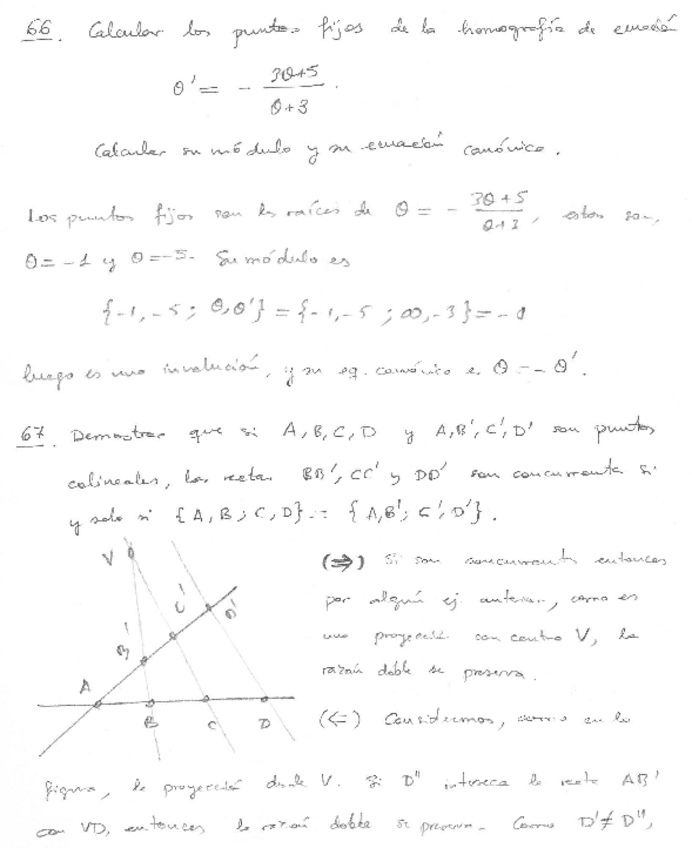 66. Calcular los puntos fijos de la homografía de ecuación
θ' = - (3θ+5)/(θ+3).
Calcular su módulo y su ecuación canónica.
Los puntos fijos son las raíces de θ = - (3θ+5)/(θ+3), estas son,
θ = -1 y θ = -5. Su módulo es
{-1, -5; θ, θ'} = {-1, -5; ∞, -3} = -1
luego es una involución, y su eq. canónica es θ = -θ'.
67. Demostrar que si A, B, C, D y A, B', C', D' son puntos
colineales, las rectas BB', CC' y DD' son concurrentes si
y solo si {A, B; C, D} = {A, B'; C', D'}.
V
C'
D'
B'
A
B C D
(⇒) Si son concurrentes entonces
por algún ej. anterior, como es
una proyección con centro V, la
razón doble se preserva.
(⇐) Consideremos, como en la
figura, la proyección desde V. Si D'' interseca la recta AB'
con VD, entonces la razón doble se preserva. Como D' ≠ D'',